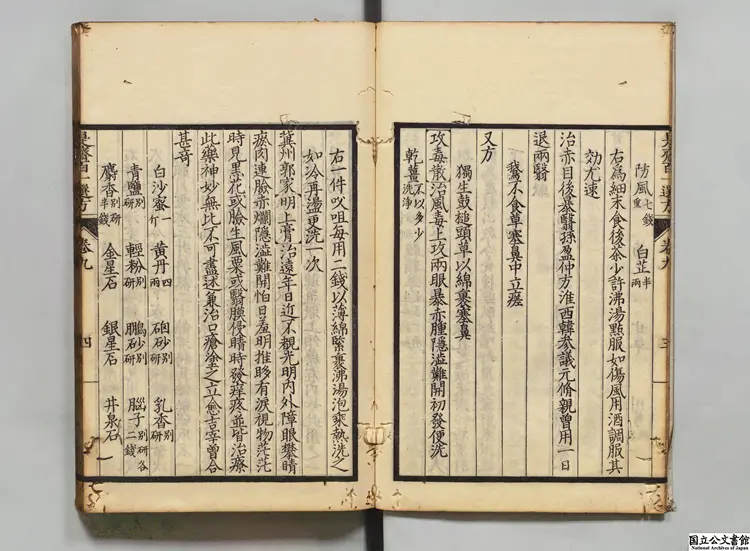 防風七錢重 白芷半兩
右為細末食後茶少許沸湯點服如傷風用酒調服其
効尤速
治赤目後暴翳孫盈仲方淮西韓參議元脩親曾用一日
退兩翳
鵞不食草塞鼻中立瘥
又方
獨生鼓槌頭草以綿裹塞鼻
攻毒散治風毒上攻兩眼暴赤腫隱澁難開初發便洗
乾薑不以多少洗淨
右一件㕮咀每用二錢以薄綿緊裹沸湯泡乘熱洗之
如冷再盪更洗一次
冀州郭家明上膏治遠年日近不覩光明內外障眼攀睛
瘀肉連瞼赤爛隱澁難開怕日羞明推眵有淚視物茫茫
時見黑花或瞼生風粟或翳膜侵睛時發痒疼並皆治療
此藥神妙無比不可盡述兼治口瘡塗之立愈言宰曾合
甚奇
白沙蜜一斤 黃丹四兩 硇砂別研 乳香別研
青鹽別研 輕粉別研 鵬砂別研 腦子別研各二錢
麝香別研半錢 金星石 銀星石 井泉石
是齋百一選方 卷九 三
是齋百一選方 卷九 四
国立公文書館
National Archives of Japan